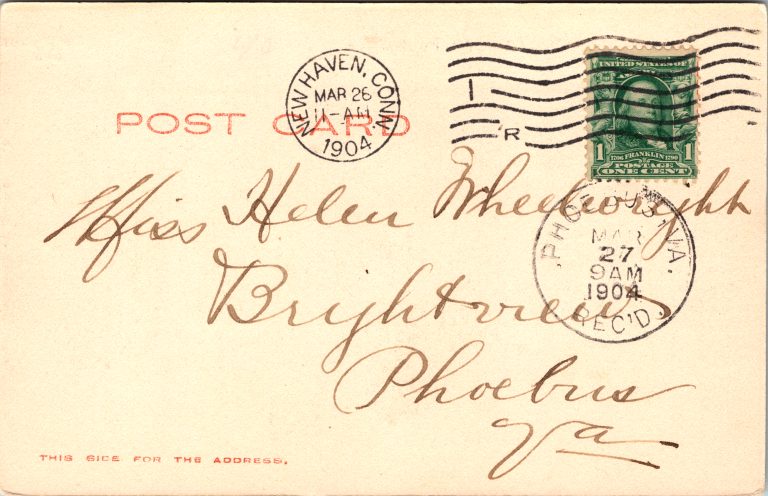 NEW HAVEN, CONN.
MAR 26
11-AM
1904
1
R
UNITED STATES OF
1706 FRANKLIN 1790
POSTAGE
1 ONE CENT
POST CARD
Miss Helen Wheelwright
PHOEBUS, VA.
MAR
27
9AM
1904
REC'D.
Brightview
Phoebus
Va
THIS SIDE FOR THE ADDRESS.